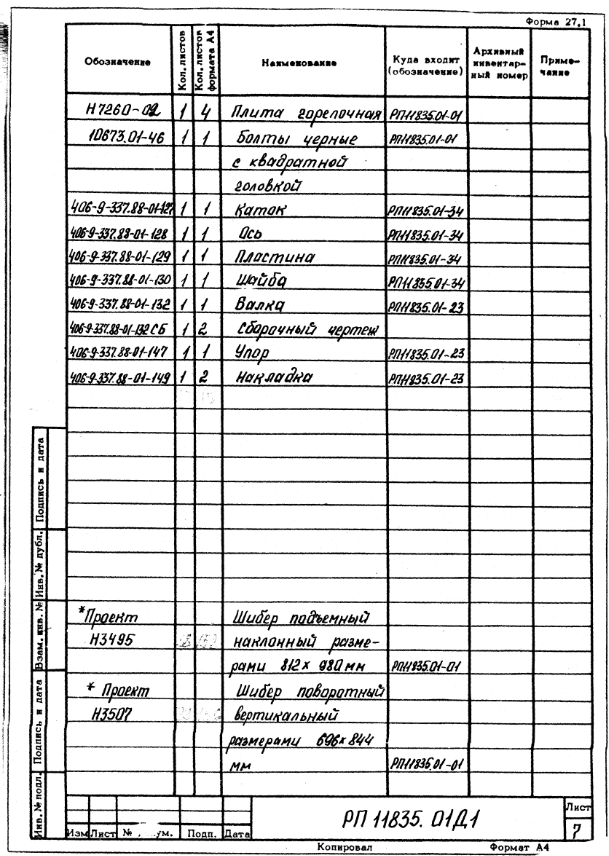 Форма 27,1
Обозначение Кол. листов Кол. листов формата А4 Наименование Куда входит (обозначение) Архивный инвентар-ный номер Приме-чание
Н7260-02 1 4 Плита горелочная РП11835.01-01
10673.01-46 1 1 Болты черные РП11835.01-01
с квадратной
головкой
406-9-337.88-01-127 1 1 Каток РП11835.01-34
406-9-337.88-01-128 1 1 Ось РП11835.01-34
406-9-337.88-01-129 1 1 Пластина РП11835.01-34
406-9-337.88-01-130 1 1 Шайба РП11835.01-34
406-9-337.88-01-132 1 1 Балка РП11835.01-23
406-9-337.88-01-132 СБ 1 2 Сборочный чертеж
406-9-337.88-01-147 1 1 Упор РП11835.01-23
406-9-337.88-01-149 1 2 Накладка РП11835.01-23
*Проект Шибер подъемный
Н3495 наклонный разме-
рами 812 х 980 мм РП11835.01-01
* Проект Шибер поворотный
Н3507 вертикальный
размерами 696 х 844
мм РП11835.01-01
Инв. № подл. Подпись и дата Взам. инв. № Инв. № дубл. Подпись и дата
РП 11835.01Д1
Лист
7
Изм Лист № ум. Подп. Дата
Копировал Формат А4